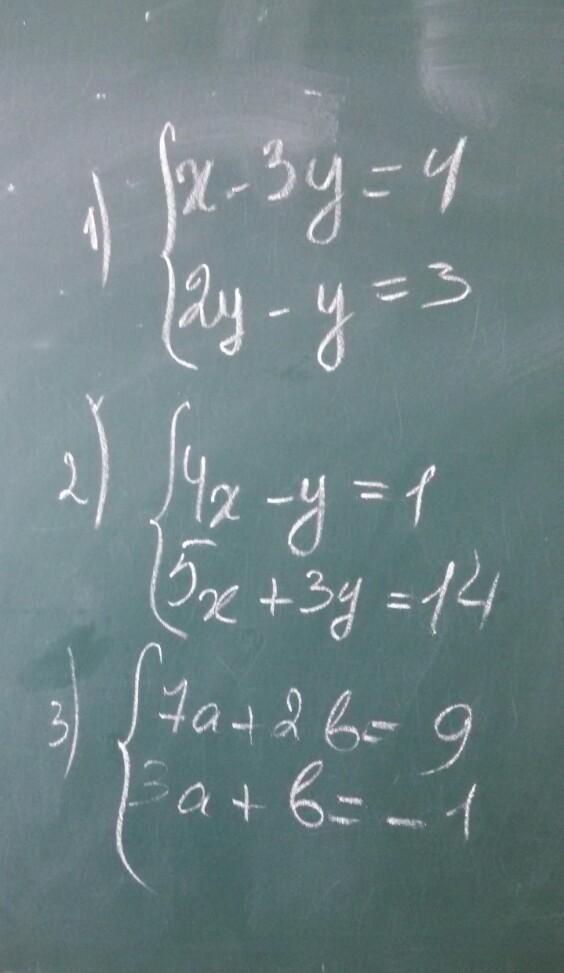 1) { x - 3y = 4
2y - y = 3
2) { 4x - y = 1
5x + 3y = 14
3) { 7a + 2b = 9
3a + b = -1